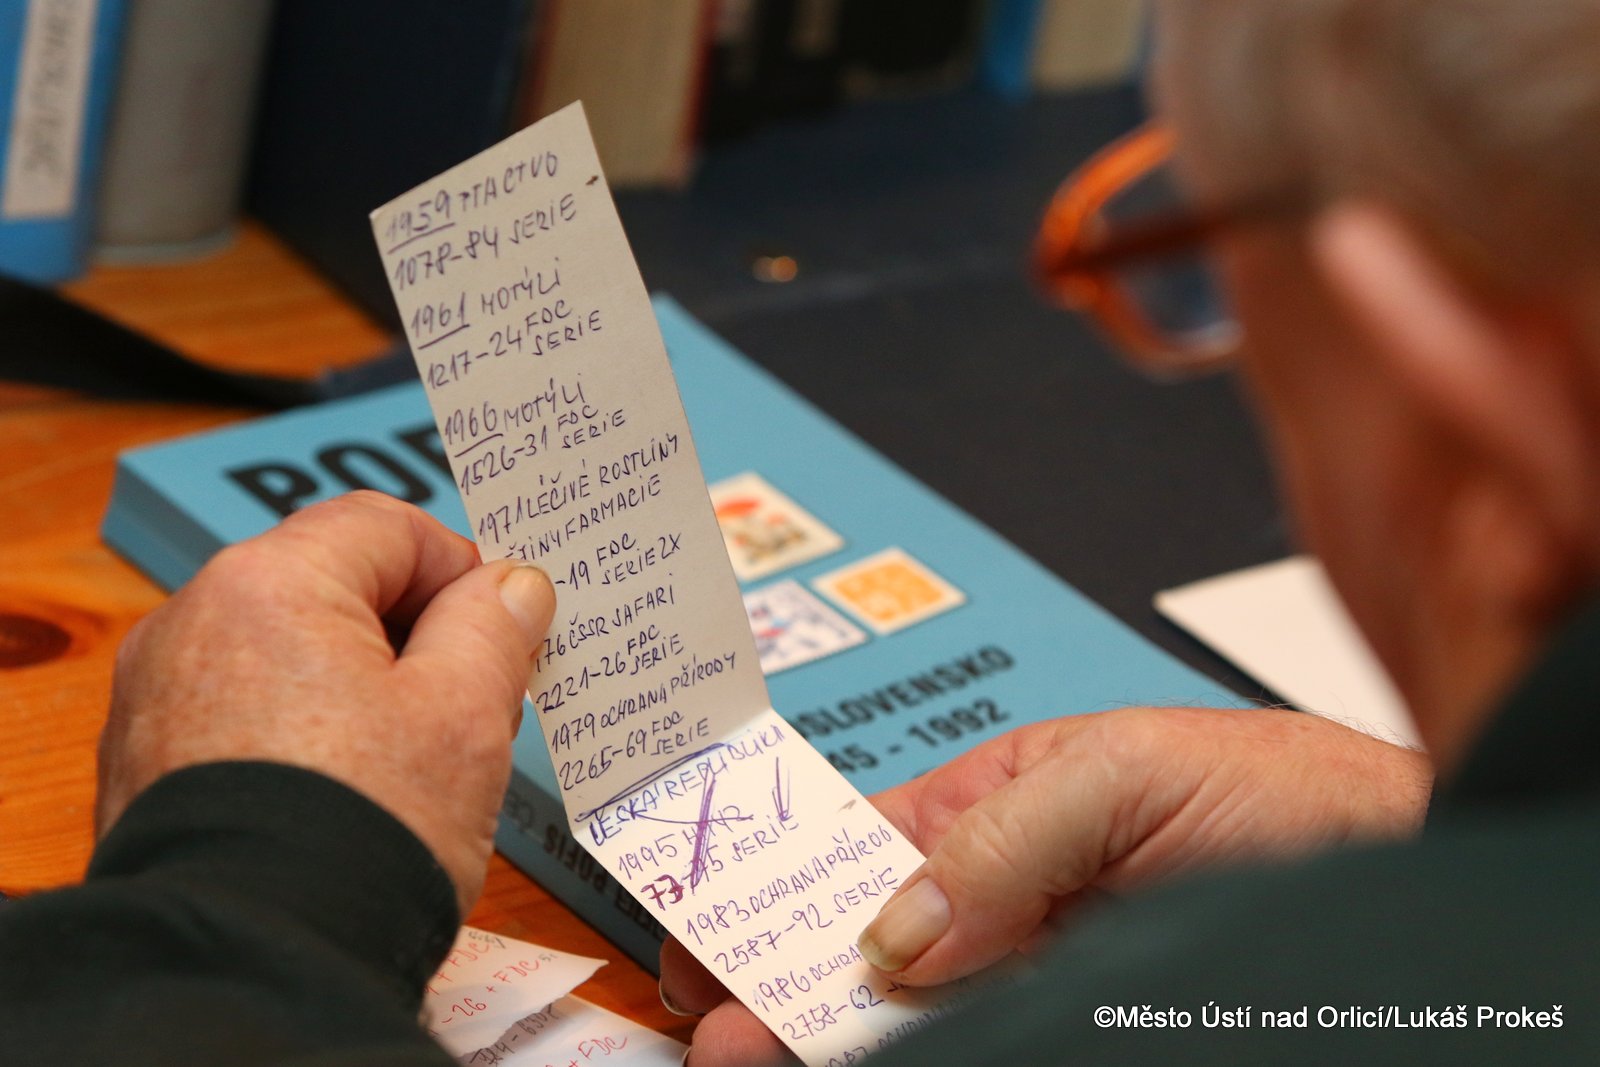 1959 PTACTVO
1078-84 SERIE
1961 MOTÝLI
1217-24 FDC
SERIE
1966 MOTÝLI
1526-31 FDC
SERIE
1971 LÉČIVÉ ROSTLINY
FARMACIE
-19 FDC
SERIE 2X
76 ČSSR SAFARI
2221-26 FDC
SERIE
1979 OCHRANA PŘÍRODY
2265-69 FDC
SERIE
ČESKÁ REPUBLIKA
1995
SERIE
1983 OCHRANA PŘÍROD
2587-92 SERIE
1986 OCHRA
2758-62
OSLOVENSKO
45 - 1992
POFIS
+ FDC
-26 + FDC
+ FDC
©Město Ústí nad Orlicí/Lukáš Prokeš